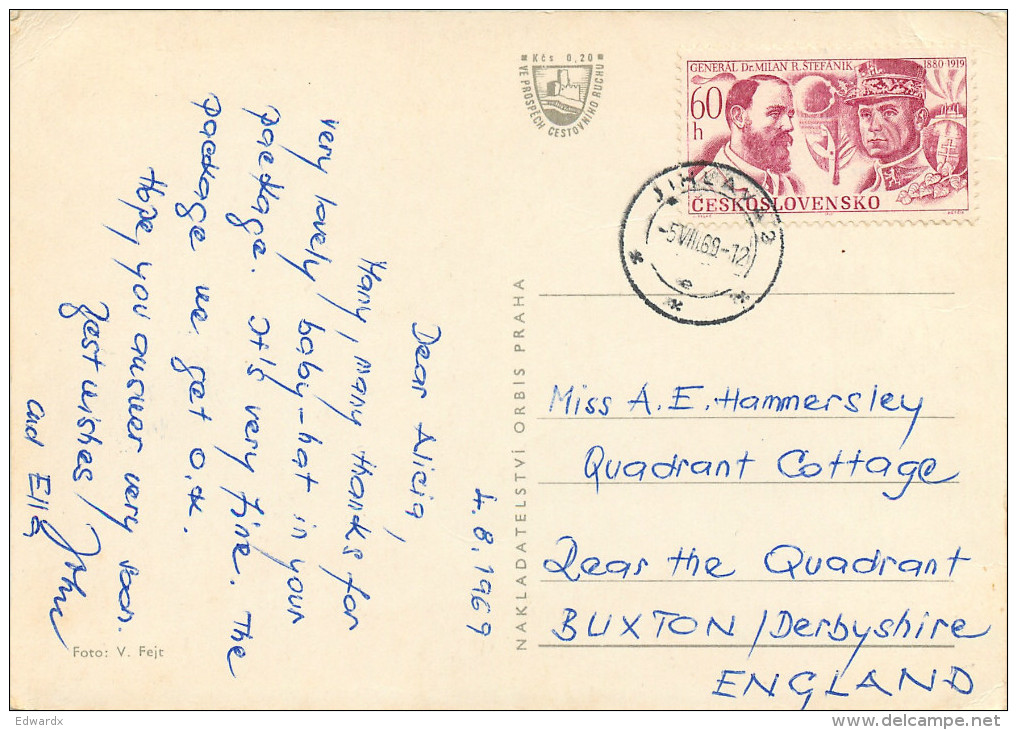 4.8.1969
Dear Alicia,
Many, many thanks for
very lovely baby-hat in your
package. It is very fine. The
package we get o.k.
Hope you answer very soon.
Best wishes / John
and Ella
Foto: V. Fejt
NAKLADATELSTVÍ ORBIS PRAHA
Kčs 0,20
VE PROSPĚCH CESTOVNÍHO RUCHU
GENERÁL Dr. MILAN R. ŠTEFÁNIK 1880-1919
60
h
ČESKOSLOVENSKO
JIHLAVA 2
-5.VIII.69-12
Miss A.E. Hammersley
Quadrant Cottage
Rear the Quadrant
BUXTON / Derbyshire
ENGLAND
Edwardx
www.delcampe.net